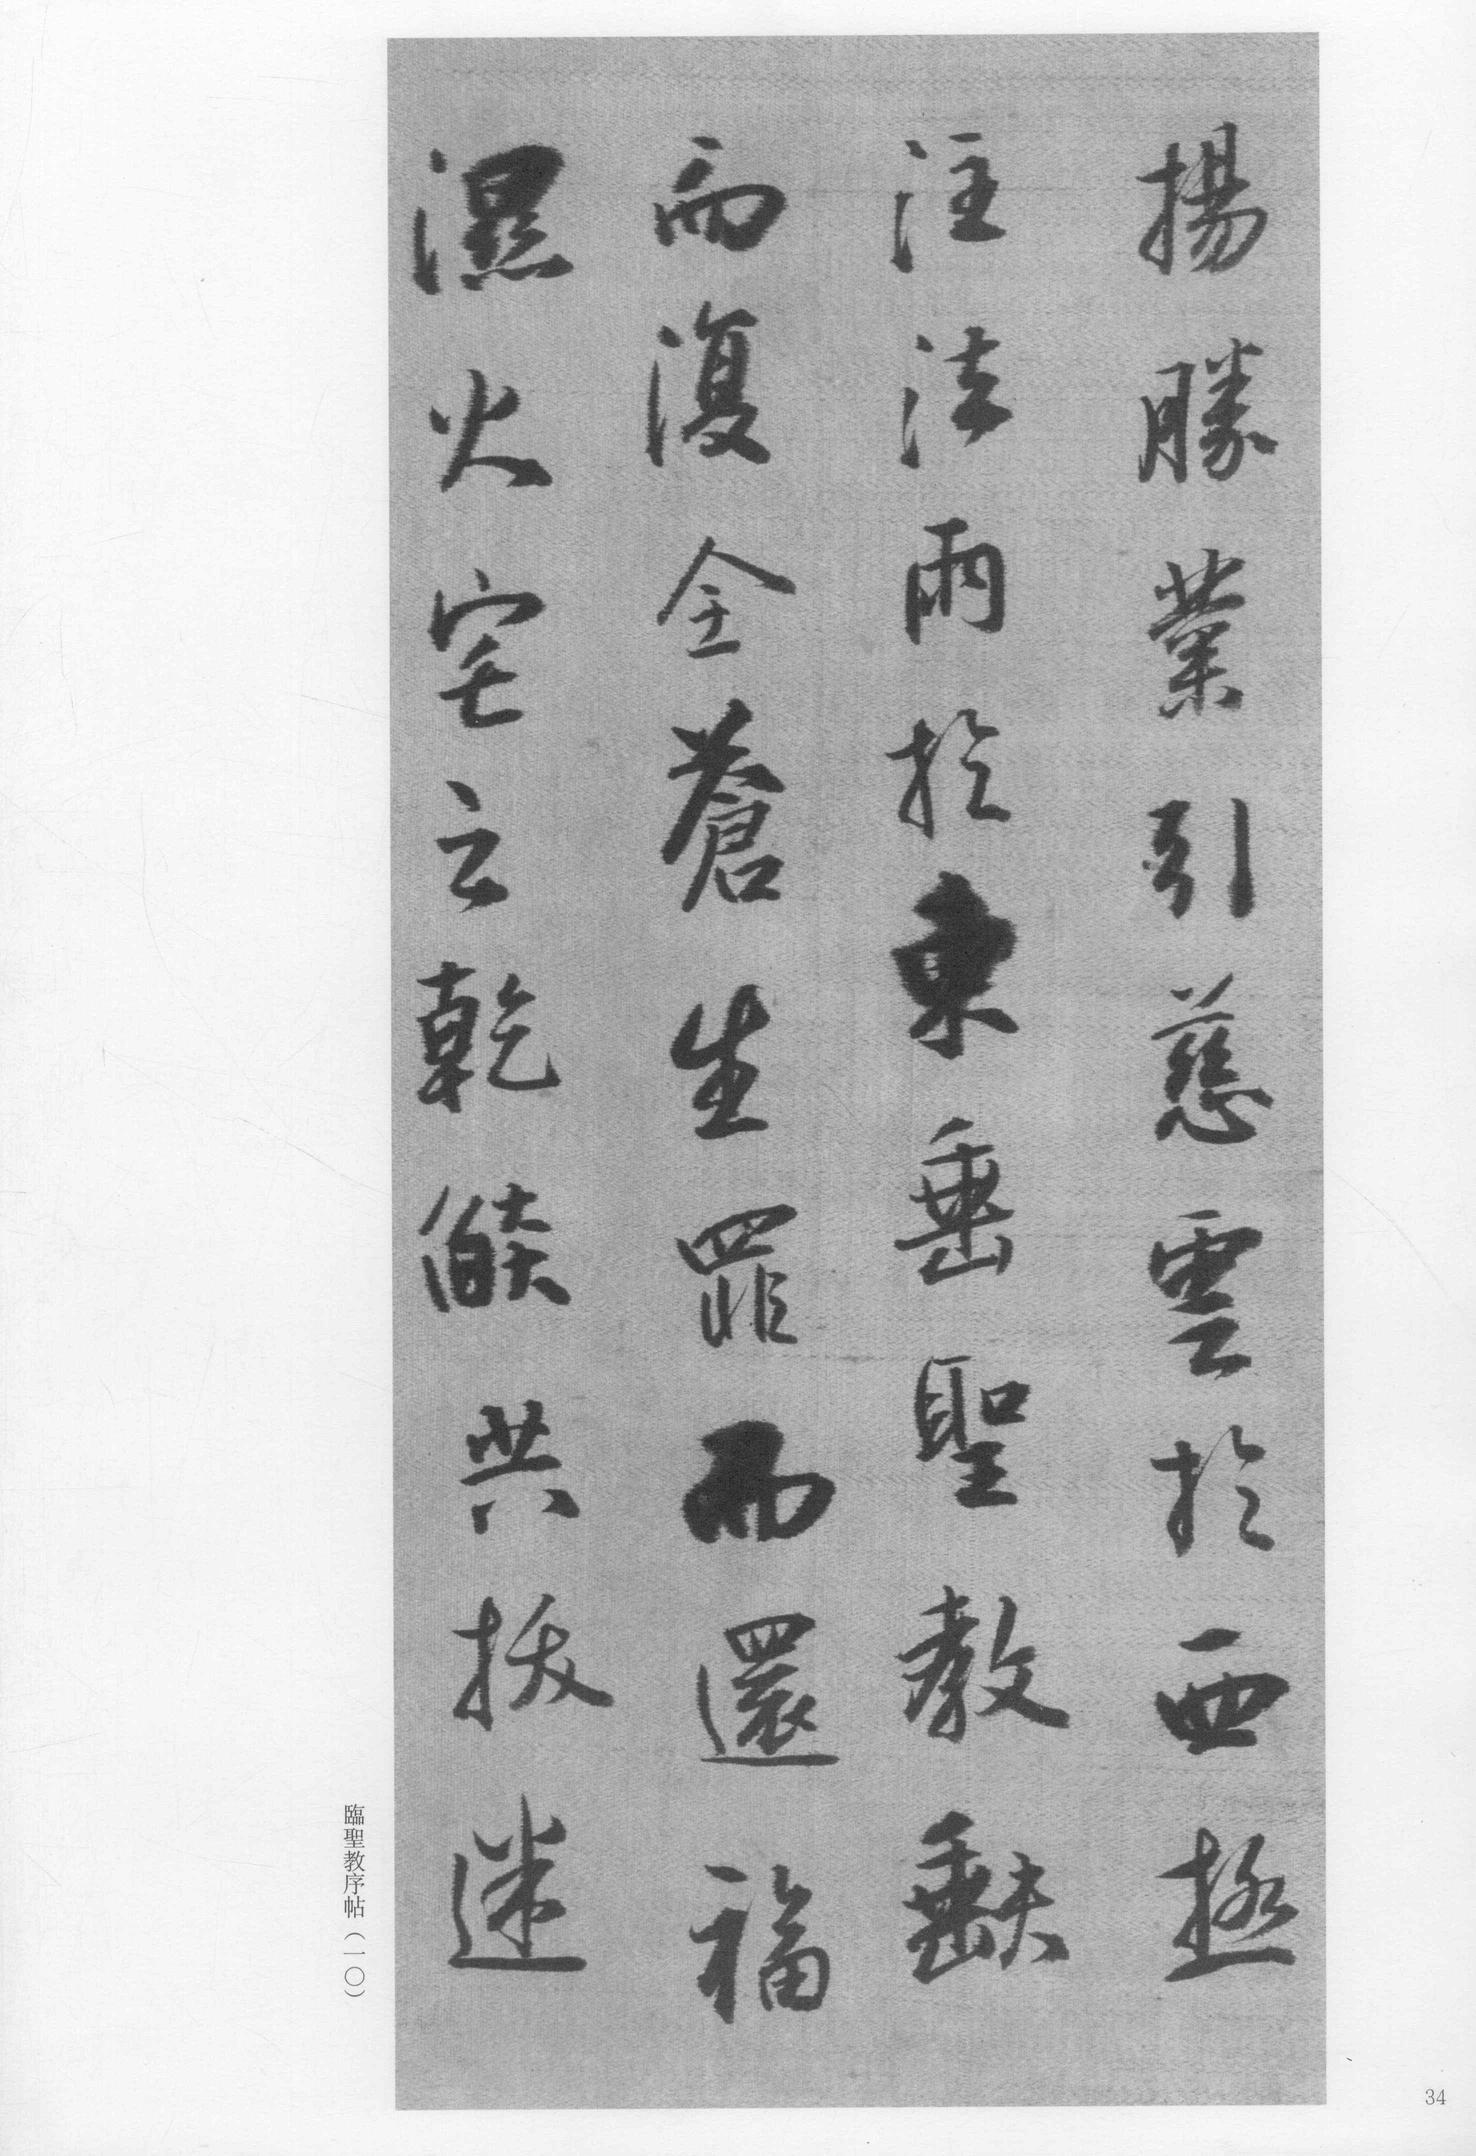 揚勝業引慈雲於西極
注法雨於東垂聖教缺
而復全蒼生罪而還福
濕火宅之乾燄共拔迷
臨聖教序帖（一〇）
34